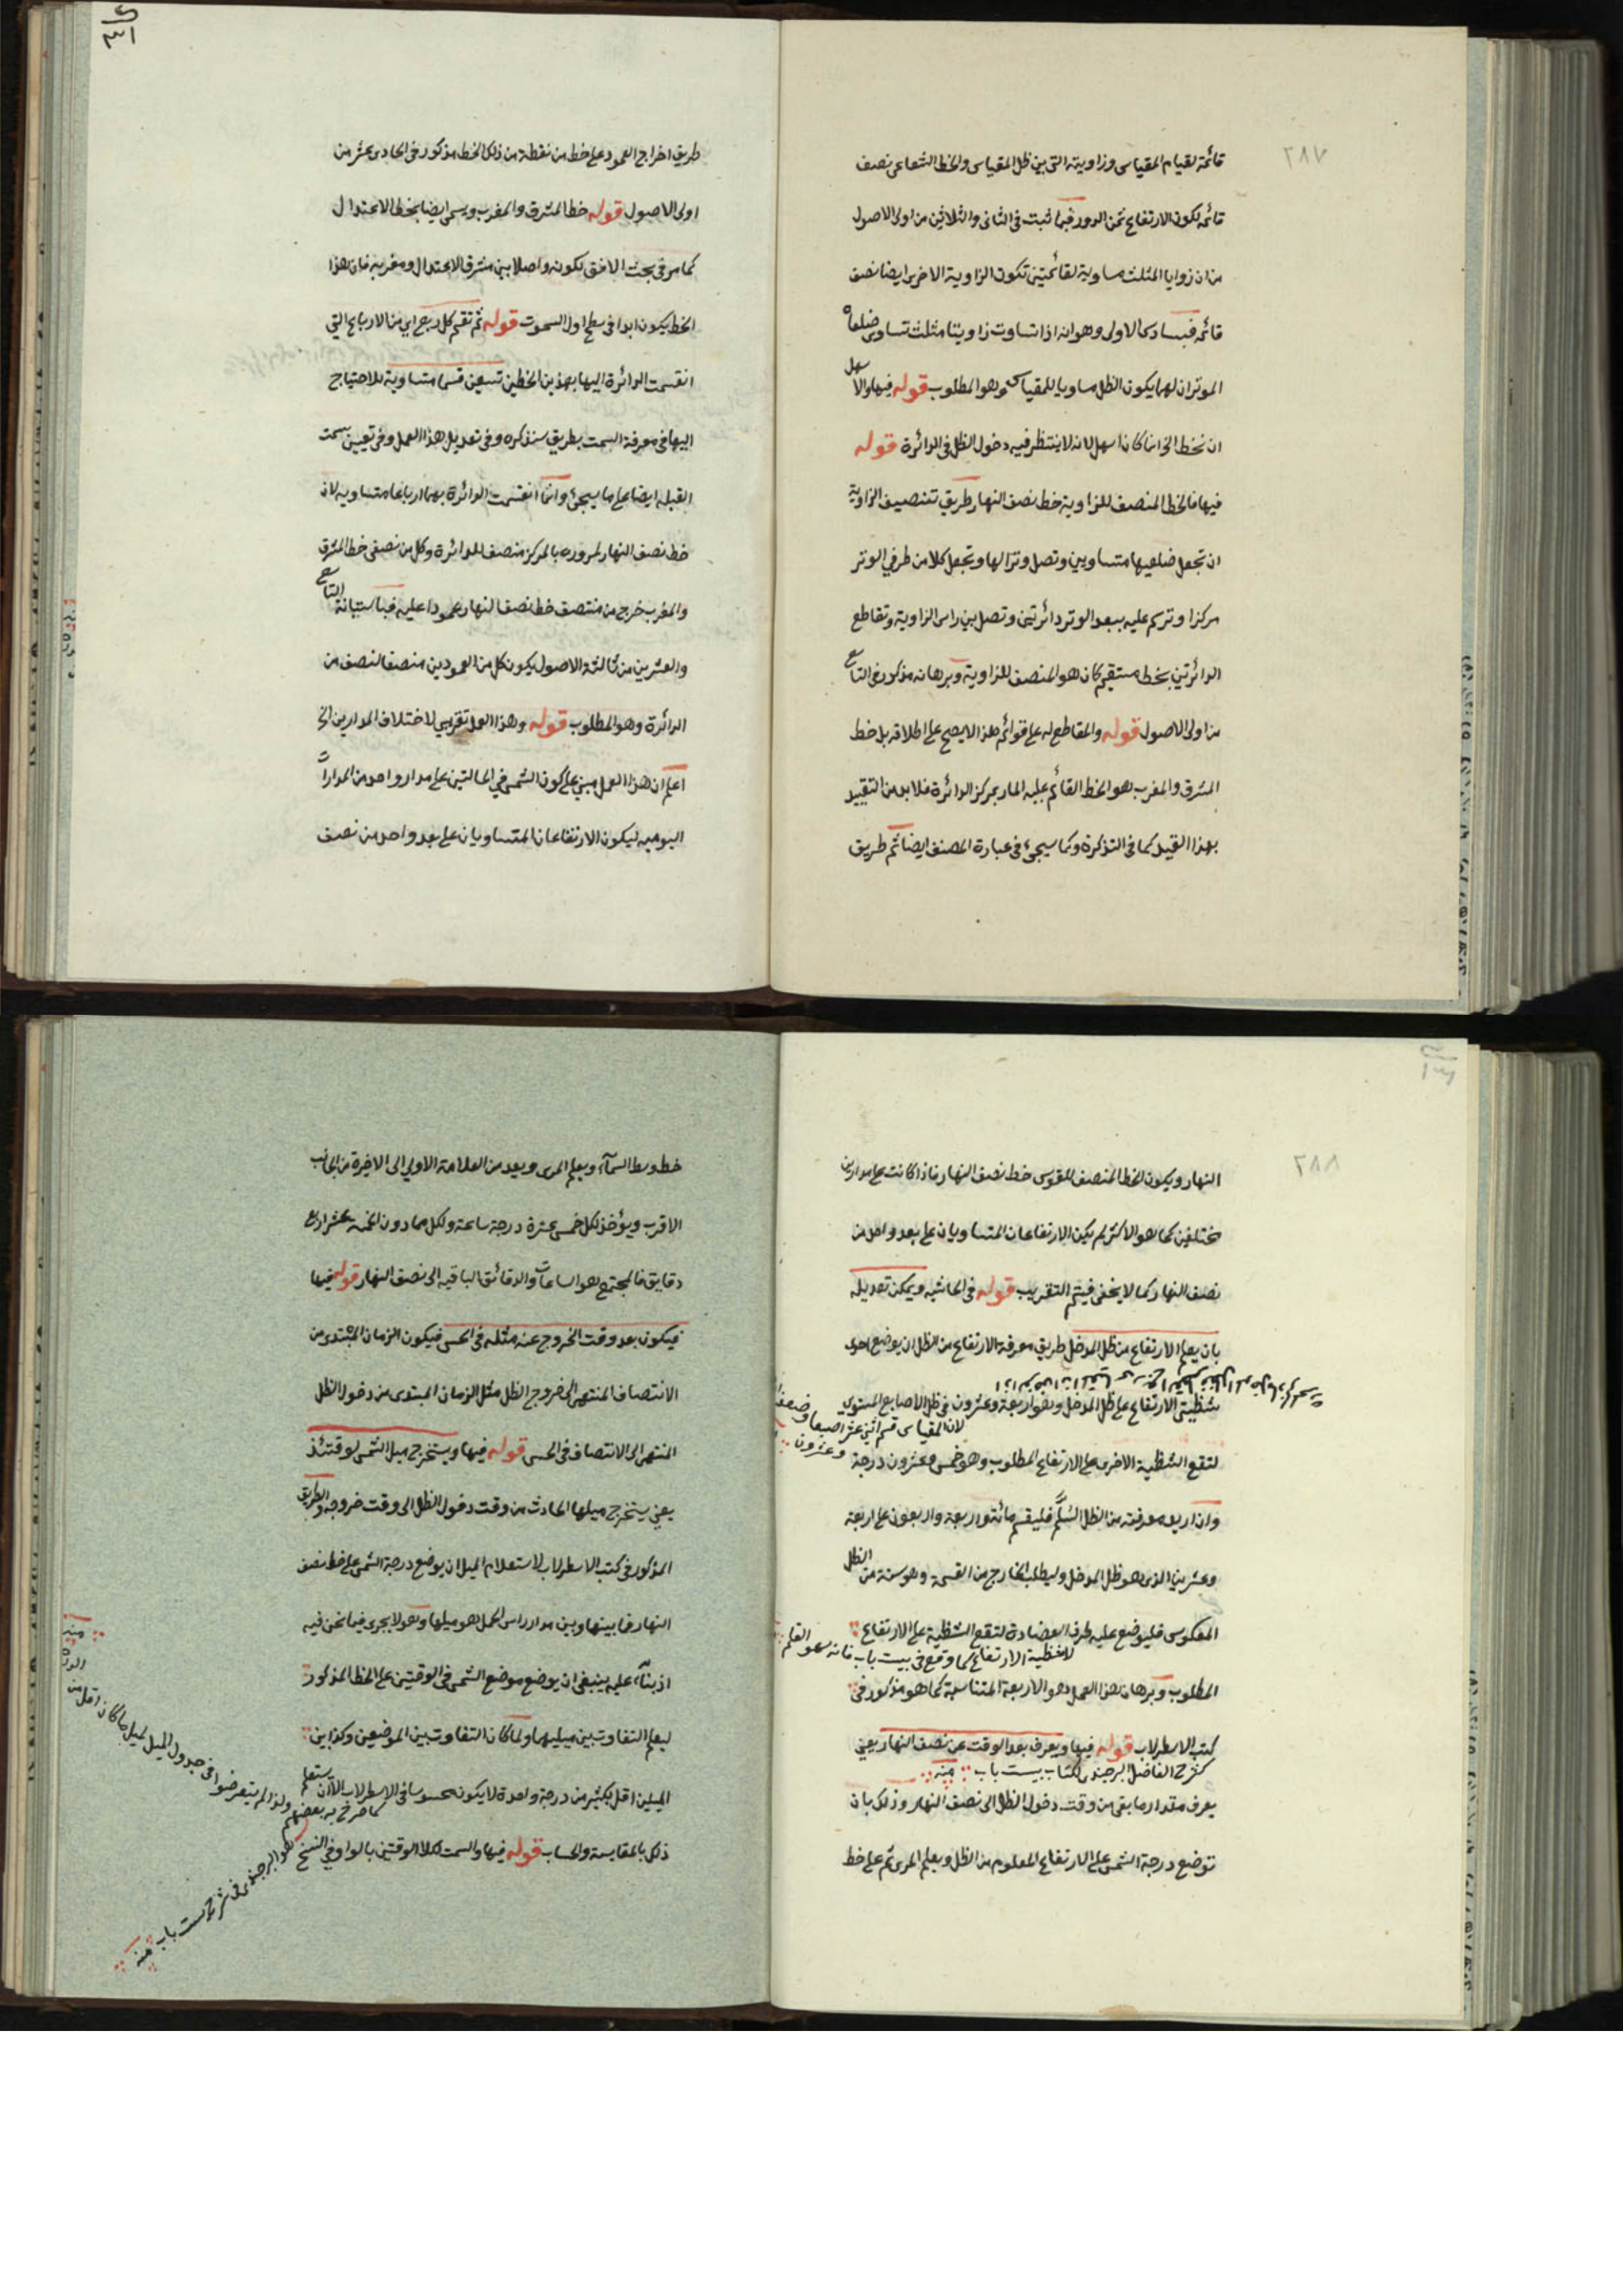 ٢٨٧
قائمة لقيام المقياس وزاويته التى بين ظل المقياس والخط الشعاعى نصف
قائمة لكون الارتفاع ثمن الدور فبما ثبت فى الثانى والثلاثين من اولى الاصول
من ان زوايا المثلث مساوية لقائمتين تكون الزاوية الاخرى ايضا نصف
قائمة فبسادس الاولى وهو انه اذا تساوت زاويتا مثلث تساوى ضلعاه
الموتران لهما يكون الظل مساويا للمقياس وهو المطلوب قوله فيها والاسهل
ان نخط الخ انما كان اسهل لانه لا ينتظر فيه دخول الظل فى الدائرة قوله
فيها فالخط المنصف للزاوية خط نصف النهار طريق تنصيف الزاوية
ان تجعل ضلعيها متساويين وتصل وترا لها وتجعل كلا من طرفي الوتر
مركزا وترسم عليه ببعد الوتر دائرتين وتصل بين راس الزاوية وتقاطع
الدائرتين بخط مستقيم كان هو المنصف للزاوية وبرهانه مذكور فى التاسع
من اولى الاصول قوله والمقاطع له على قوائم هذا لا يصح على اطلاقه بل خط
المشرق والمغرب هو الخط القائم عليه المار بمركز الدائرة فلا بد من التقييد
بهذا القيد كما فى التذكرة وكما سيجئ فى عبارة المصنف ايضا ثم طريق
طريق اخراج العمود على خط من نقطة من ذلك الخط مذكور فى الحادى عشر من
اولى الاصول قوله خط المشرق والمغرب ويسمى ايضا بخط الاعتدال
كما مر فى بحث الافق لكونه واصلا بين مشرق الاعتدال ومغربه فان هذا
الخط يكون ابدا فى سطح اول السموت قوله ثم تقسم كل ربع اى من الارباع التى
انقسمت الدائرة اليها بهذين الخطين تسعين قسما متساوية للاحتياج
اليها فى معرفة السمت بطريق سنذكره وفى تعديل هذا العمل وفى تعيين سمت
القبلة ايضا على ما سيجئ وانما انقسمت الدائرة بهما ارباعا متساوية لان
خط نصف النهار لمروره بالمركز منصف للدائرة وكل من نصفى خط المشرق
والمغرب خرج من منتصف خط نصف النهار عمودا عليه فباستبانة التاسع
والعشرين من ثالثة الاصول يكون كل من العمودين منصفا لنصف من
الدائرة وهو المطلوب قوله وهذا العمل تقريبي لاختلاف المدارين الخ
اعلم ان هذا العمل مبني على كون الشمس في الحالتين على مدار واحد من المدارات
اليومية ليكون الارتفاعان المتساويان على بعد واحد من نصف
٢٨٨
النهار ويكون الخط المنصف للقوس خط نصف النهار فاذا كانت على مدارين
مختلفين كما هو الاكثر لم يكن الارتفاعان المتساويان على بعد واحد من
نصف النهار كما لا يخفى فيتم التقريب قوله فى الحاشية ويمكن تعديله
بان يعلم الارتفاع من ظل المدخل طريق معرفة الارتفاع من الظل ان يوضع احدى
شظيتى الارتفاع على ظل المدخل وهو اربعة وعشرون فى ظل الاصابع المستوى
لان المقياس قسم اثنى عشر اصبعا وضعفها
وعشرون
لتقع الشظية الاخرى على الارتفاع المطلوب وهو خمس وعشرون درجة
وان اريد معرفته من الظل السلّم فليقسم مائة واربعة واربعون على اربعة
وعشرين الذى هو ظل المدخل وليطلب الخارج من القسمة وهو ستة من الظل
المعكوس فليوضع عليه طرف العضادة لتقع الشظية على الارتفاع
لا شظية الارتفاع كما وقع فى بيست باب فانه سهو القلم
المطلوب وبرهان هذا العمل هو الاربعة المتناسبة كما هو مذكور فى
كتب الاسطرلاب قوله فيها ويعرف بعد الوقت عن نصف النهار يعني
كشرح الفاضل البرجندى لكتاب بيست باب منه
يعرف مقدار ما بقى من وقت دخول الظل الى نصف النهار وذلك بان
توضع درجة الشمس على الارتفاع المعلوم من الظل ويعلم المرى ثم على خط
خط وسط السماء ويعلم المرى ويعد من العلامة الاولى الى الاخيرة من الجانب
الاقرب ويؤخذ لكل خمس عشرة درجة ساعة ولكل مما دون الخمسة عشر اربع
دقايق فالمجتمع هو الساعات والدقائق الباقية الى نصف النهار قوله فيها
فيكون بعد وقت الخروج عنه مثله فى الحس فيكون الزمان المبتدى من
الانتصاف المنتهى الى خروج الظل مثل الزمان المبتدى من دخول الظل
المنتهى الى الانتصاف فى الحس قوله فيها ويستخرج ميل الشمس لوقتئذ
يعني يستخرج ميلها الحادث من وقت دخول الظل الى وقت خروجه والطريق
المذكور فى كتب الاسطرلاب لاستعلام الميل ان يوضع درجة الشمس على خط نصف
النهار فما بينها وبين مدار راس الحمل هو ميلها وهو لا يجرى فيما نحن فيه
اذ بناء عليه ينبغى ان يوضع موضع الشمس فى الوقتين على الخط المذكور
ليعلم التفاوت بين ميليهما ولما كان التفاوت بين الموضعين وكذا بين
الميلين اقل بكثير من درجة واحدة لا يكون محسوسا فى الاسطرلاب الا ان يستعلم
كما صرح به بعضهم
ذلك بالمقايسة والحساب قوله فيها والسمت لكلا الوقتين بالواو وفي النسخ
هو البرجندى فى شرح بيست باب منه
ولذا لم يتعرضوا فى جدول الميل لميل ما كان اقل من
الدرجة
منه